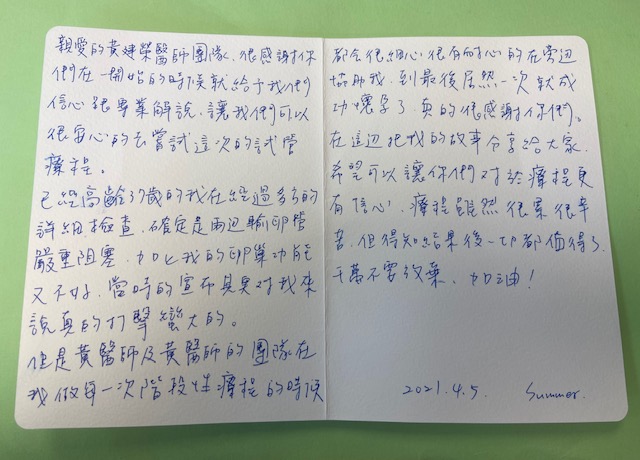 親愛的黃建榮醫師團隊,很感謝你
們在一開始的時候就給予我們
信心跟專業解說,讓我們可以
很安心的去嘗試這次的試管
療程。
已經高齡37歲的我在經過多方的
詳細檢查,確定是兩邊輸卵管
嚴重阻塞,加上我的卵巢功能
又不好,當時的宣布其實對我來
說真的打擊蠻大的。
但是黃醫師及黃醫師的團隊在
我做每一次階段性療程的時候
都會很細心很有耐心的在旁邊
協助我,到最後居然一次就成
功懷孕了,真的很感謝你們。
在這邊把我的故事分享給大家,
希望可以讓你們對於療程更
有信心,療程雖然很累很辛
苦,但得知結果後一切都值得了,
千萬不要放棄,加油!
2021.4.5. Summer.